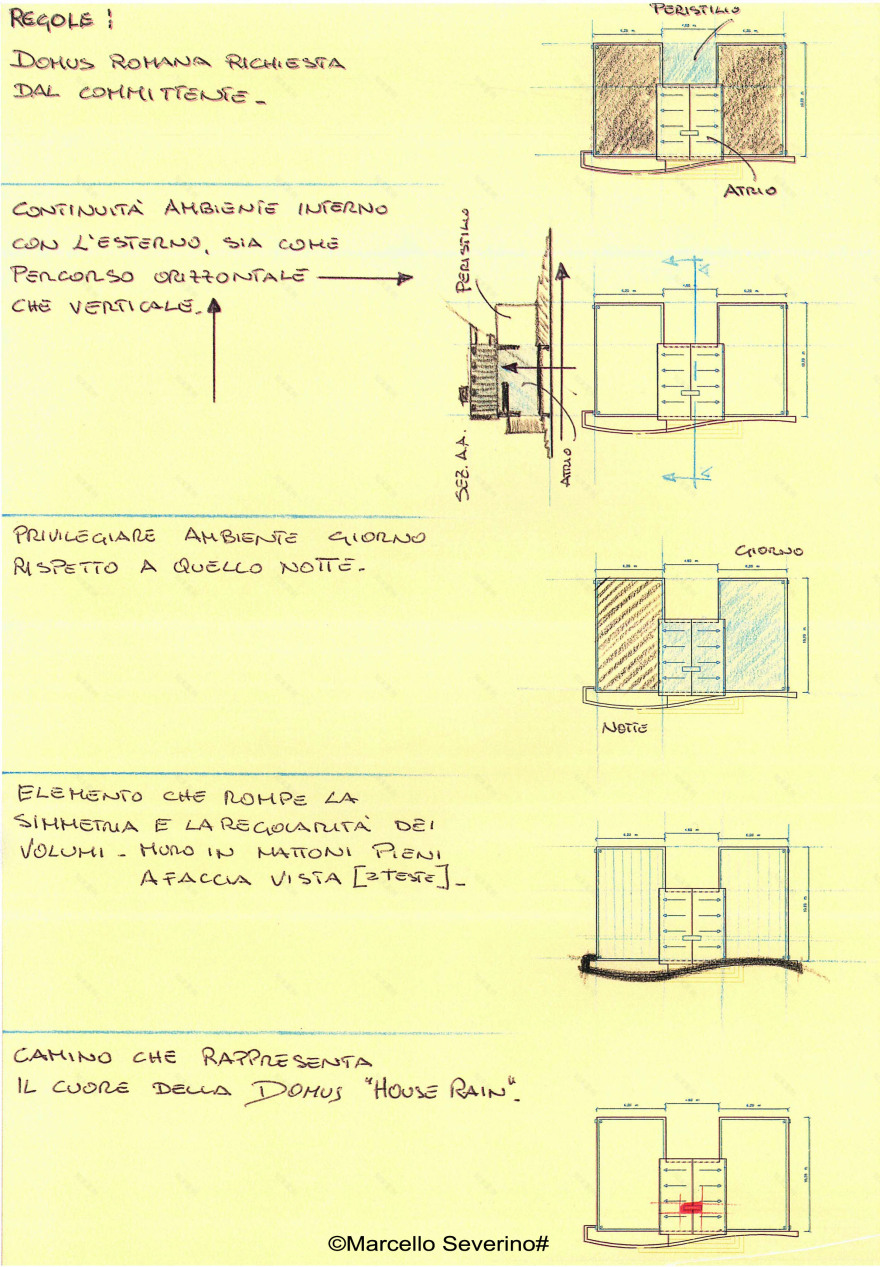 REGOLE :
DOMUS ROMANA RICHIESTA
DAL COMMITTENTE -
PERISTILIO
ATRIO
CONTINUITÀ AMBIENTE INTERNO
CON L'ESTERNO, SIA COME
PERCORSO ORIZZONTALE
CHE VERTICALE.
PERISTILIO
SEZ. A.A.
ATRIO
A
A
PRIVILEGIARE AMBIENTE GIORNO
RISPETTO A QUELLO NOTTE -
GIORNO
NOTTE
ELEMENTO CHE ROMPE LA
SIMMETRIA E LA REGOLARITÀ DEI
VOLUMI - MURO IN MATTONI PIENI
A FACCIA VISTA [2 TESTE] -
CAMINO CHE RAPPRESENTA
IL CUORE DELLA DOMUS "HOUSE RAIN".
©Marcello Severino#